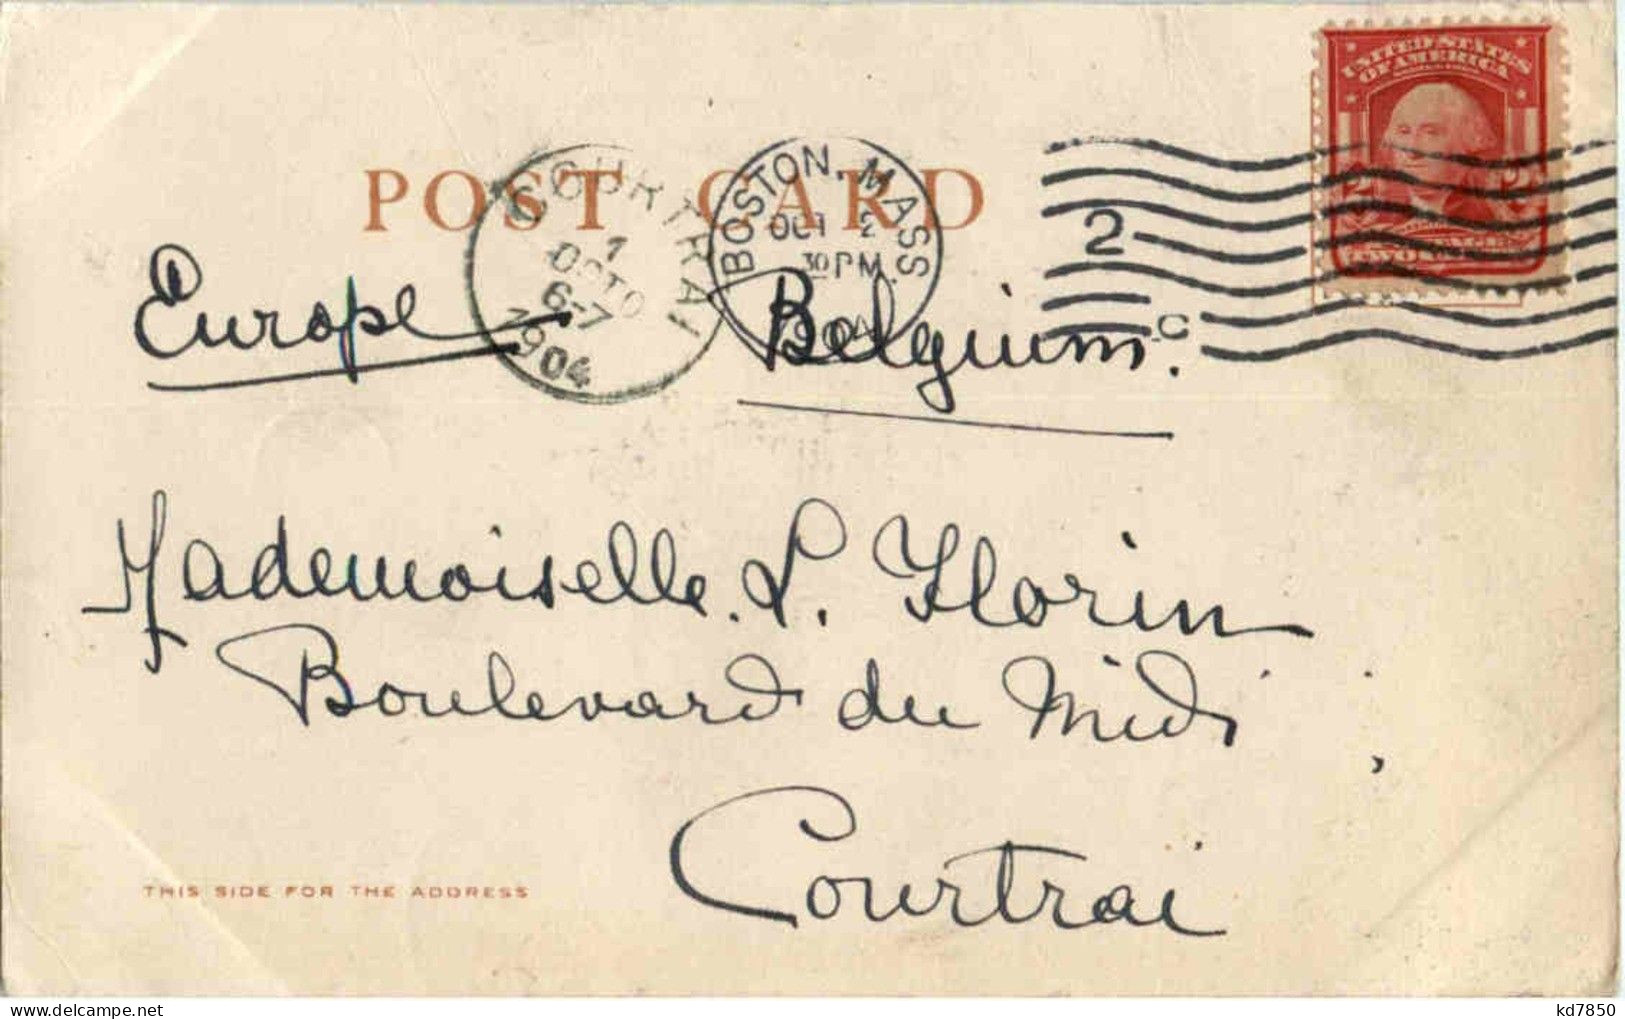 UNITED STATES
OF AMERICA
2 2
TWO
POST CARD
COURTRAI
1
OCTO
6-7
1904
BOSTON, MASS.
OCT 2
30 PM
1904
2
C
Europe Belgium.
Mademoiselle L. Florin
Boulevard du Midi
Courtrai
THIS SIDE FOR THE ADDRESS
kd7850